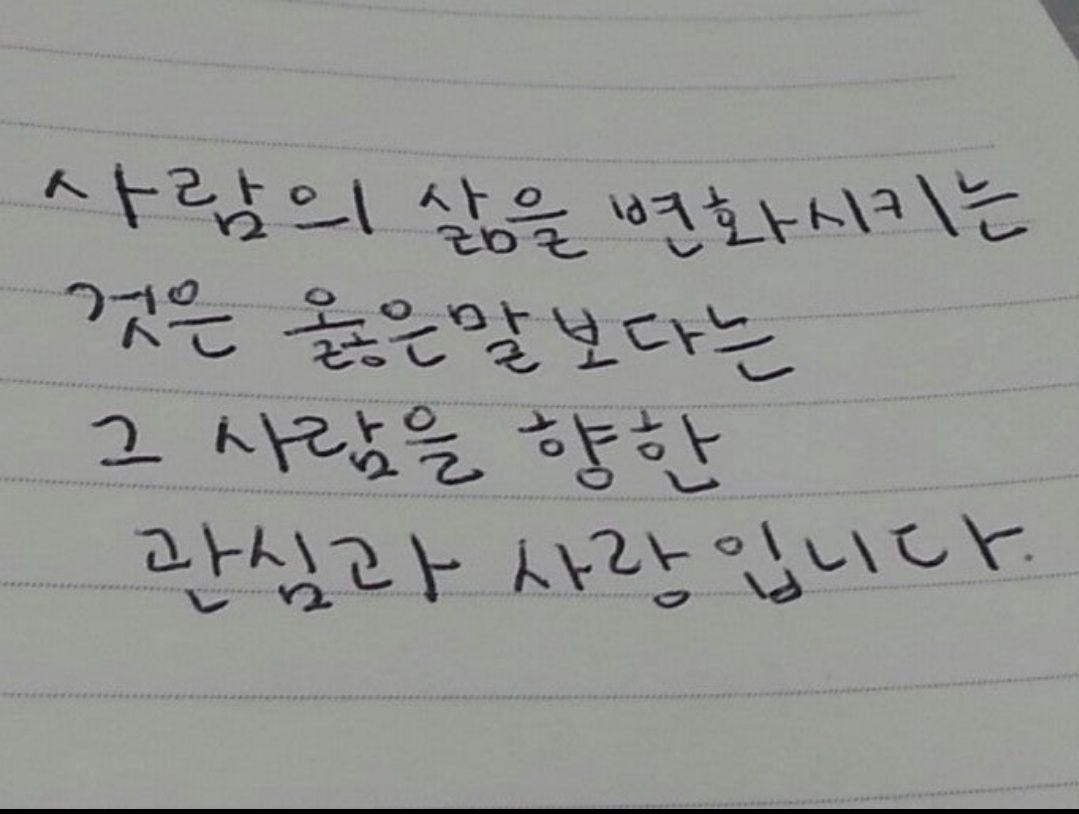 사람의 삶을 변화시키는
것은 옳은말보다는
그 사람을 향한
관심과 사랑입니다.